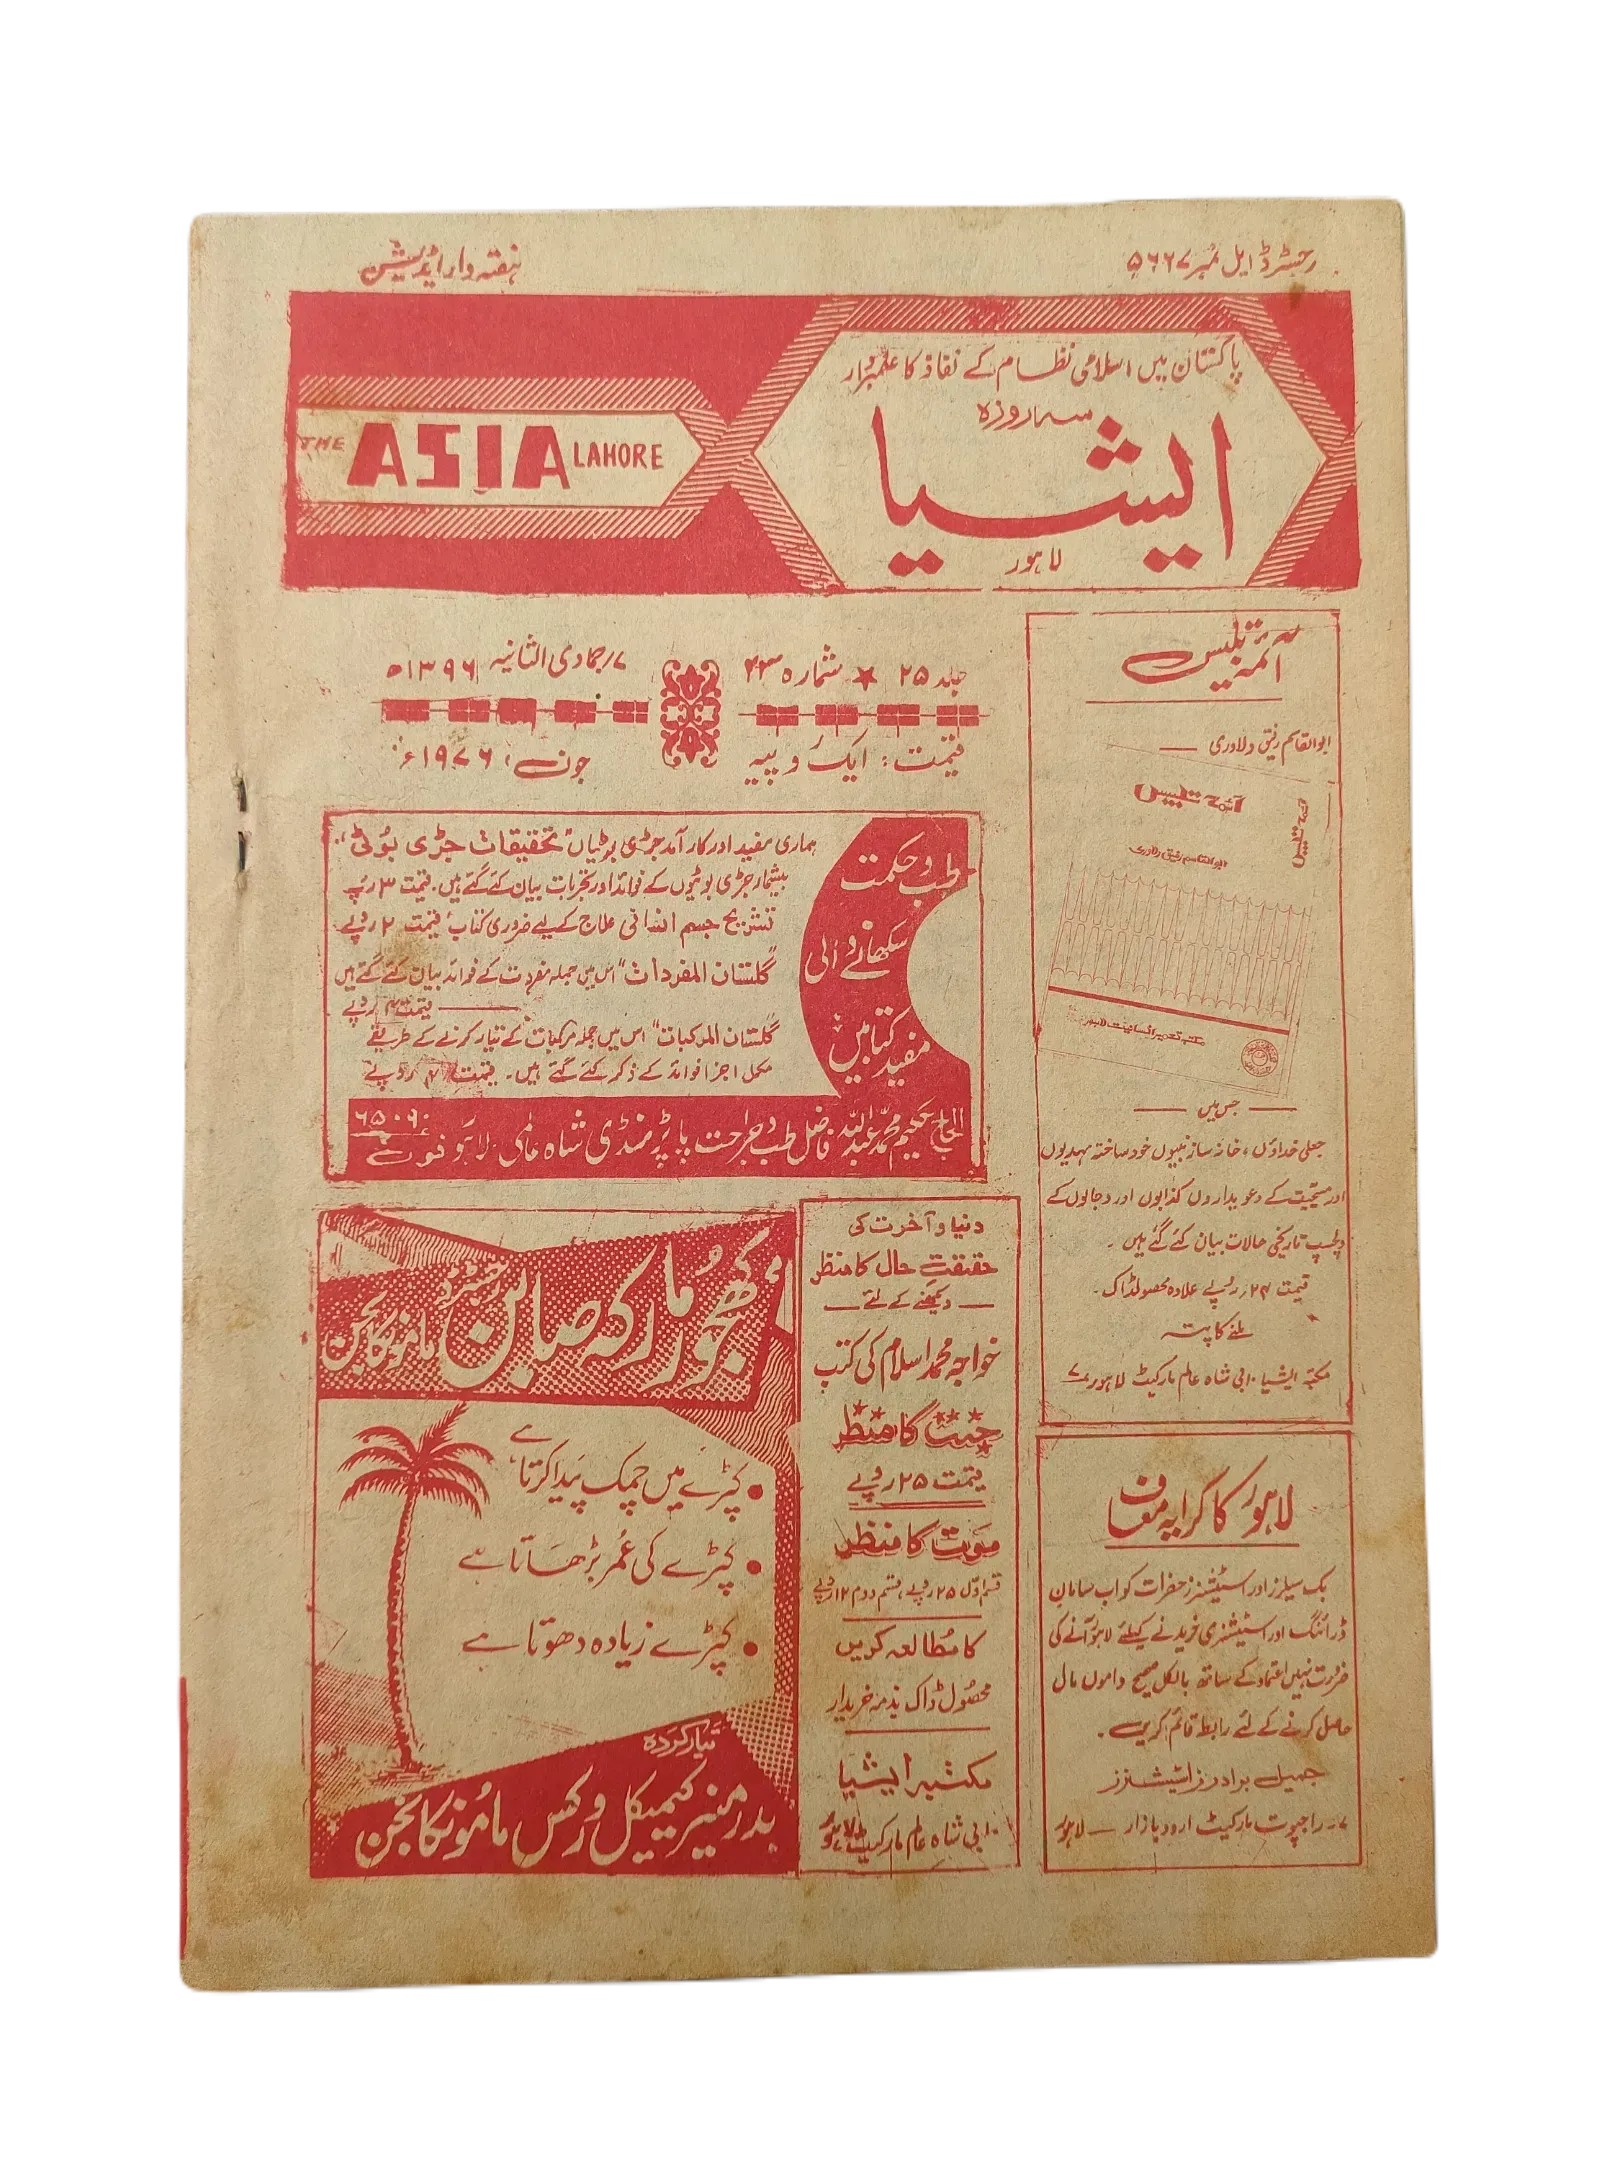 رجسٹرڈ ایل نمبر ۵۶۶۷
ہفتہ وار ایڈیشن
پاکستان میں اسلامی نظام کے نفاذ کا علمبردار
سہ روزہ
ایشیا
لاہور
THE ASIA LAHORE
جلد ۲۵ ★ شمارہ ۲۳
۷؍جمادی الثانیہ ۱۳۹۶ھ
قیمت: ایک روپیہ
جون، ۱۹۷۶ء
ائمہ تلبیس
ابوالقاسم رفیق دلاوری
ائمہ تلبیس
ابوالقاسم رفیق دلاوری
ائمہ تلبیس
مکتبہ تعمیر انسانیت لاہور
جس میں
جعلی خداؤں، خانہ ساز نبیوں خود ساختہ مہدیوں
اور مسیحیت کے دعویداروں کذابوں اور دجالوں کے
دلچسپ تاریخی حالات بیان کئے گئے ہیں۔
قیمت ۲۴؍روپے علاوہ محصولڈاک۔
ملنے کا پتہ
مکتبہ ایشیا ۱۰ بی شاہ عالم مارکیٹ لاہور ۷
طب و حکمت
سکھانے والی
مفید کتابیں
ہماری مفید اور کارآمد جڑی بوٹیاں "تحقیقات جڑی بوٹی"
بیشمار جڑی بوٹیوں کے فوائد اور تجربات بیان کئے گئے ہیں۔ قیمت ۳ روپے
تشریح جسم انسانی علاج کے لیے ضروری کتاب قیمت ۲ روپے
"گلستان المفردات" اس میں جملہ مفردات کے فوائد بیان کئے گئے ہیں
قیمت ۴ روپے
"گلستان المرکبات" اس میں جملہ مرکبات کے تیار کرنے کے طریقے
مکمل اجزا فوائد کے ذکر کئے گئے ہیں۔ قیمت ۴ روپے
الحاج حکیم محمد عبداللہ فاضل طب و جراحت پاپڑ منڈی شاہ عالمی لاہور فون ۶۵۰۶۰
کھجور مارکہ صابن
ماموں کانجن
کپڑے میں چمک پیدا کرتا ہے
کپڑے کی عمر بڑھاتا ہے
کپڑے زیادہ دھوتا ہے
تیار کردہ
بدر منیر کیمیکل ورکس ماموں کانجن
دنیا و آخرت کی
حقیقت حال کا منظر
دیکھنے کے لئے
خواجہ محمد اسلام کی کتب
جنت کا منظر
قیمت ۲۵ روپے
موت کا منظر
قسم اول ۲۵ روپے، قسم دوم ۱۲ روپے
کا مطالعہ کریں
محصول ڈاک بذمہ خریدار
مکتبہ ایشیا
۱۰ بی شاہ عالم مارکیٹ لاہور
لاہور کا کرایہ معاف
بک سیلرز اور اسٹیشنرز حضرات کو اب سامان
ڈرائنگ اور اسٹیشنری خریدنے کیلئے لاہور آنے کی
ضرورت نہیں اعتماد کے ساتھ بالکل صحیح داموں مال
حاصل کرنے کے لئے رابطہ قائم کریں۔
جمیل برادرز اسٹیشنرز
۷۔ راجپوت مارکیٹ اردو بازار — لاہور